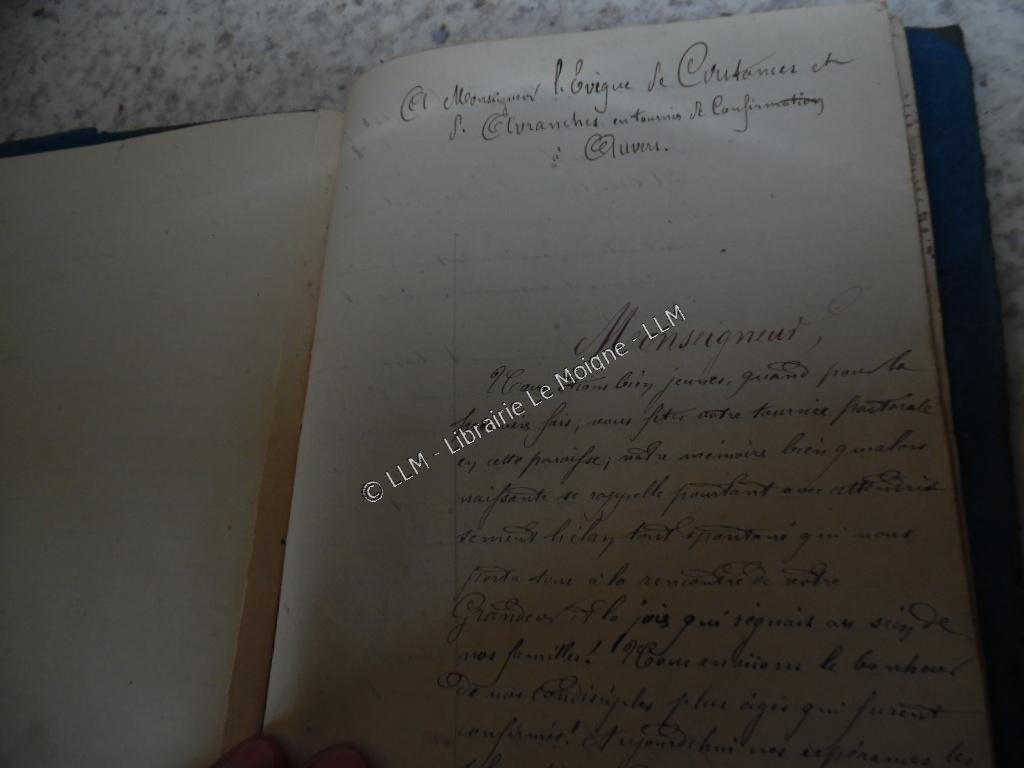 A Monseigneur l'Evêque de Coutances et
d'Avranches en tournée de Confirmation
à Auvers.
Monseigneur,
Nous étions bien jeunes, quand pour la
première fois, vous fîtes votre tournée pastorale
en cette paroisse; notre mémoire bien qu'alors
naissante se rappelle pourtant avec attendris
sement l'élan tout spontané qui nous
porta tous à la rencontre de votre
Grandeur et la joie qui régnait au sein de
nos familles! Nous enviions le bonheur
de nos condisciples plus âgés qui furent
confirmés! Aujourd'hui nos espérances les
© LLM - Librairie Le Moigne - LLM